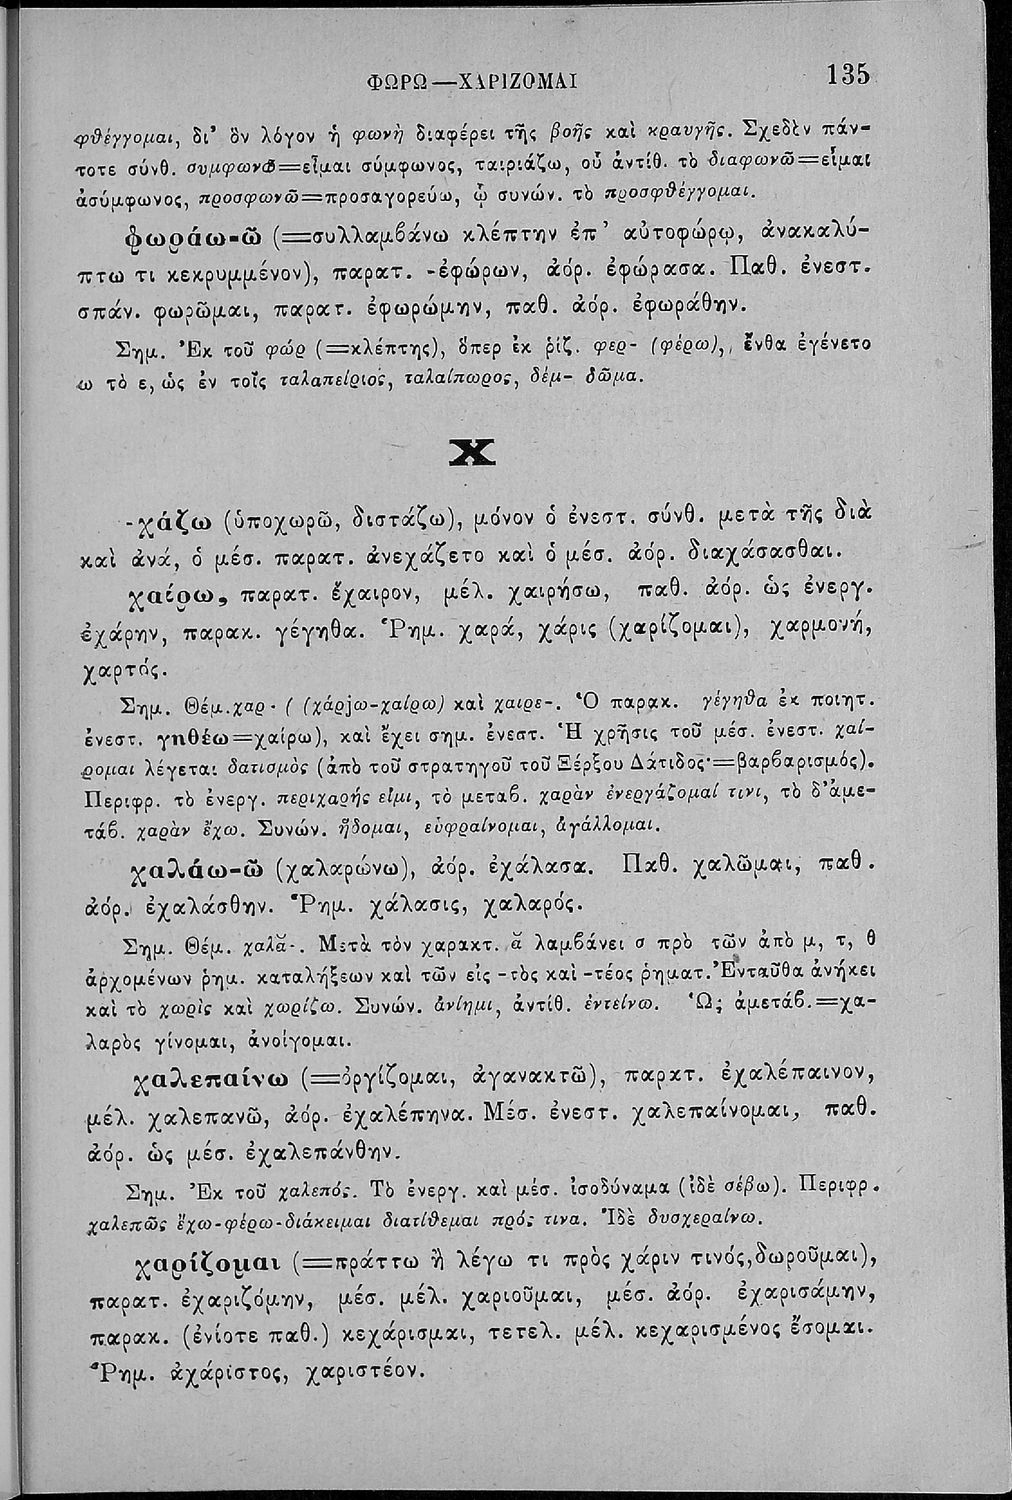 ΦΩΡΩ—ΧΑΡΙΖΟΜΑΙ 135
φθέγγομαι, δι' ὃν λόγον ἡ φωνὴ διαφέρει τῆς βοῆς καὶ κραυγῆς. Σχεδὸν πάν-
τοτε σύνθ. συμφωνῶ=εἶμαι σύμφωνος, ταιριάζω, οὗ ἀντίθ. τὸ διαφωνῶ=εἶμαι
ἀσύμφωνος, προσφωνῶ=προσαγορεύω, ᾧ συνών. τὸ προσφθέγγομαι.
φωράω-ῶ (=συλλαμβάνω κλέπτην ἐπ' αὐτοφώρῳ, ἀνακαλύ-
πτω τι κεκρυμμένον), παρατ. -ἐφώρων, ἀόρ. ἐφώρασα. Παθ. ἐνεστ.
σπάν. φωρῶμαι, παρατ. ἐφωρώμην, παθ. ἀόρ. ἐφωράθην.
Σημ. Ἐκ τοῦ φώρ (=κλέπτης), ὅπερ ἐκ ῥίζ. φερ- (φέρω), ἔνθα ἐγένετο
ω τὸ ε, ὡς ἐν τοῖς ταλαπείριος, ταλαίπωρος, δέμ- δῶμα.
Χ
-χάζω (ὑποχωρῶ, διστάζω), μόνον ὁ ἐνεστ. σύνθ. μετὰ τῆς διὰ
καὶ ἀνά, ὁ μέσ. παρατ. ἀνεχάζετο καὶ ὁ μέσ. ἀόρ. διαχάσασθαι.
χαίρω, παρατ. ἔχαιρον, μέλ. χαιρήσω, παθ. ἀόρ. ὡς ἐνεργ.
ἐχάρην, παρακ. γέγηθα. Ῥημ. χαρά, χάρις (χαρίζομαι), χαρμονή,
χαρτός.
Σημ. Θέμ.χαρ- ( (χάρjω-χαίρω) καὶ χαιρε-. Ὁ παρακ. γέγηθα ἐκ ποιητ.
ἐνεστ. γηθέω=χαίρω), καὶ ἔχει σημ. ἐνεστ. Ἡ χρῆσις τοῦ μέσ. ἐνεστ. χαί-
ρομαι λέγεται δατισμὸς (ἀπὸ τοῦ στρατηγοῦ τοῦ Ξέρξου Δάτιδος·=βαρβαρισμός).
Περιφρ. τὸ ἐνεργ. περιχαρής εἰμι, τὸ μεταβ. χαρὰν ἐνεργάζομαί τινι, τὸ δ'ἀμε-
τάβ. χαρὰν ἔχω. Συνών. ἥδομαι, εὐφραίνομαι, ἀγάλλομαι.
χαλάω-ῶ (χαλαρώνω), ἀόρ. ἐχάλασα. Παθ. χαλῶμαι, παθ.
ἀόρ. ἐχαλάσθην. Ῥημ. χάλασις, χαλαρός.
Σημ. Θέμ. χαλᾰ-. Μετὰ τὸν χαρακτ. ᾰ λαμβάνει σ πρὸ τῶν ἀπὸ μ, τ, θ
ἀρχομένων ῥημ. καταλήξεων καὶ τῶν εἰς -τὸς καὶ -τέος ῥηματ. Ἐνταῦθα ἀνήκει
καὶ τὸ χωρὶς καὶ χωρίζω. Συνών. ἀνίημι, ἀντίθ. ἐντείνω. Ὡς ἀμετάβ.=χα-
λαρὸς γίνομαι, ἀνοίγομαι.
χαλεπαίνω (=ὀργίζομαι, ἀγανακτῶ), παρατ. ἐχαλέπαινον,
μέλ. χαλεπανῶ, ἀόρ. ἐχαλέπηνα. Μέσ. ἐνεστ. χαλεπαίνομαι, παθ.
ἀόρ. ὡς μέσ. ἐχαλεπάνθην.
Σημ. Ἐκ τοῦ χαλεπός. Τὸ ἐνεργ. καὶ μέσ. ἰσοδύναμα (ἰδὲ σέβω). Περιφρ.
χαλεπῶς ἔχω-φέρω-διάκειμαι διατίθεμαι πρός τινα. Ἰδὲ δυσχεραίνω.
χαρίζομαι (=πράττω ἢ λέγω τι πρὸς χάριν τινός,δωροῦμαι),
παρατ. ἐχαριζόμην, μέσ. μέλ. χαριοῦμαι, μέσ. ἀόρ. ἐχαρισάμην,
παρακ. (ἐνίοτε παθ.) κεχάρισμαι, τετελ. μέλ. κεχαρισμένος ἔσομαι.
Ῥημ. ἀχάριστος, χαριστέον.